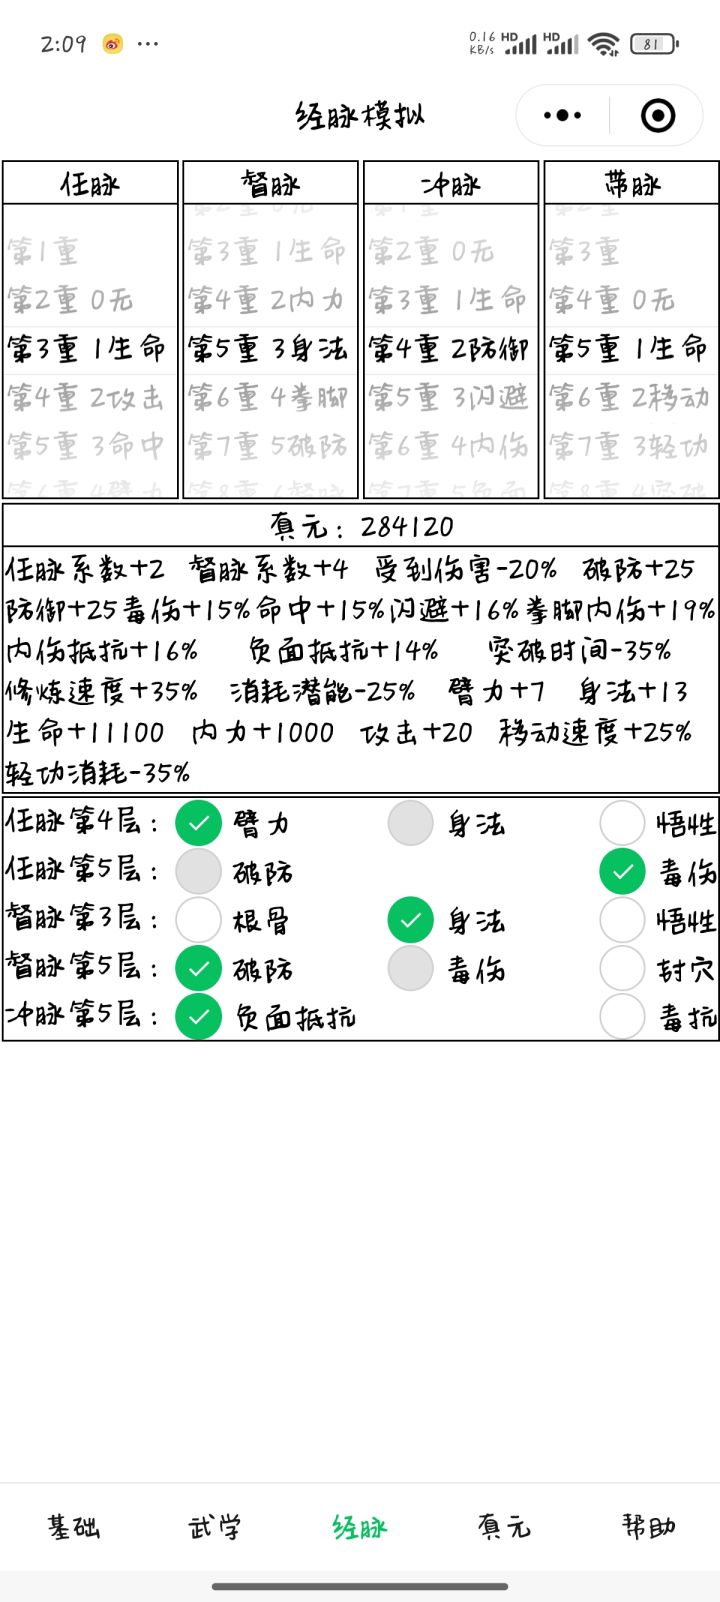 2:09 ... 0.16 KB/s HD HD 81
经脉模拟
任脉 督脉 冲脉 带脉
第1重 第3重 1生命 第2重 0无 第3重
第2重 0无 第4重 2内力 第3重 1生命 第4重 0无
第3重 1生命 第5重 3身法 第4重 2防御 第5重 1生命
第4重 2攻击 第6重 4拳脚 第5重 3闪避 第6重 2移动
第5重 3命中 第7重 5破防 第6重 4内伤 第7重 3轻功
真元：284120
任脉系数+2 督脉系数+4 受到伤害-20% 破防+25
防御+25 毒伤+15% 命中+15% 闪避+16% 拳脚内伤+19%
内伤抵抗+16% 负面抵抗+14% 突破时间-35%
修炼速度+35% 消耗潜能-25% 臂力+7 身法+13
生命+11100 内力+1000 攻击+20 移动速度+25%
轻功消耗-35%
任脉第4层： 臂力 身法 悟性
任脉第5层： 破防 毒伤
督脉第3层： 根骨 身法 悟性
督脉第5层： 破防 毒伤 封穴
冲脉第5层： 负面抵抗 毒抗
基础 武学 经脉 真元 帮助